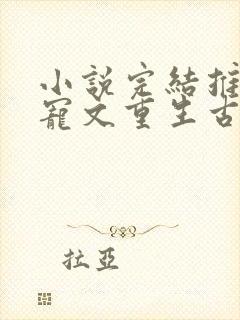 小說完結推
寵文重生古
拉亞